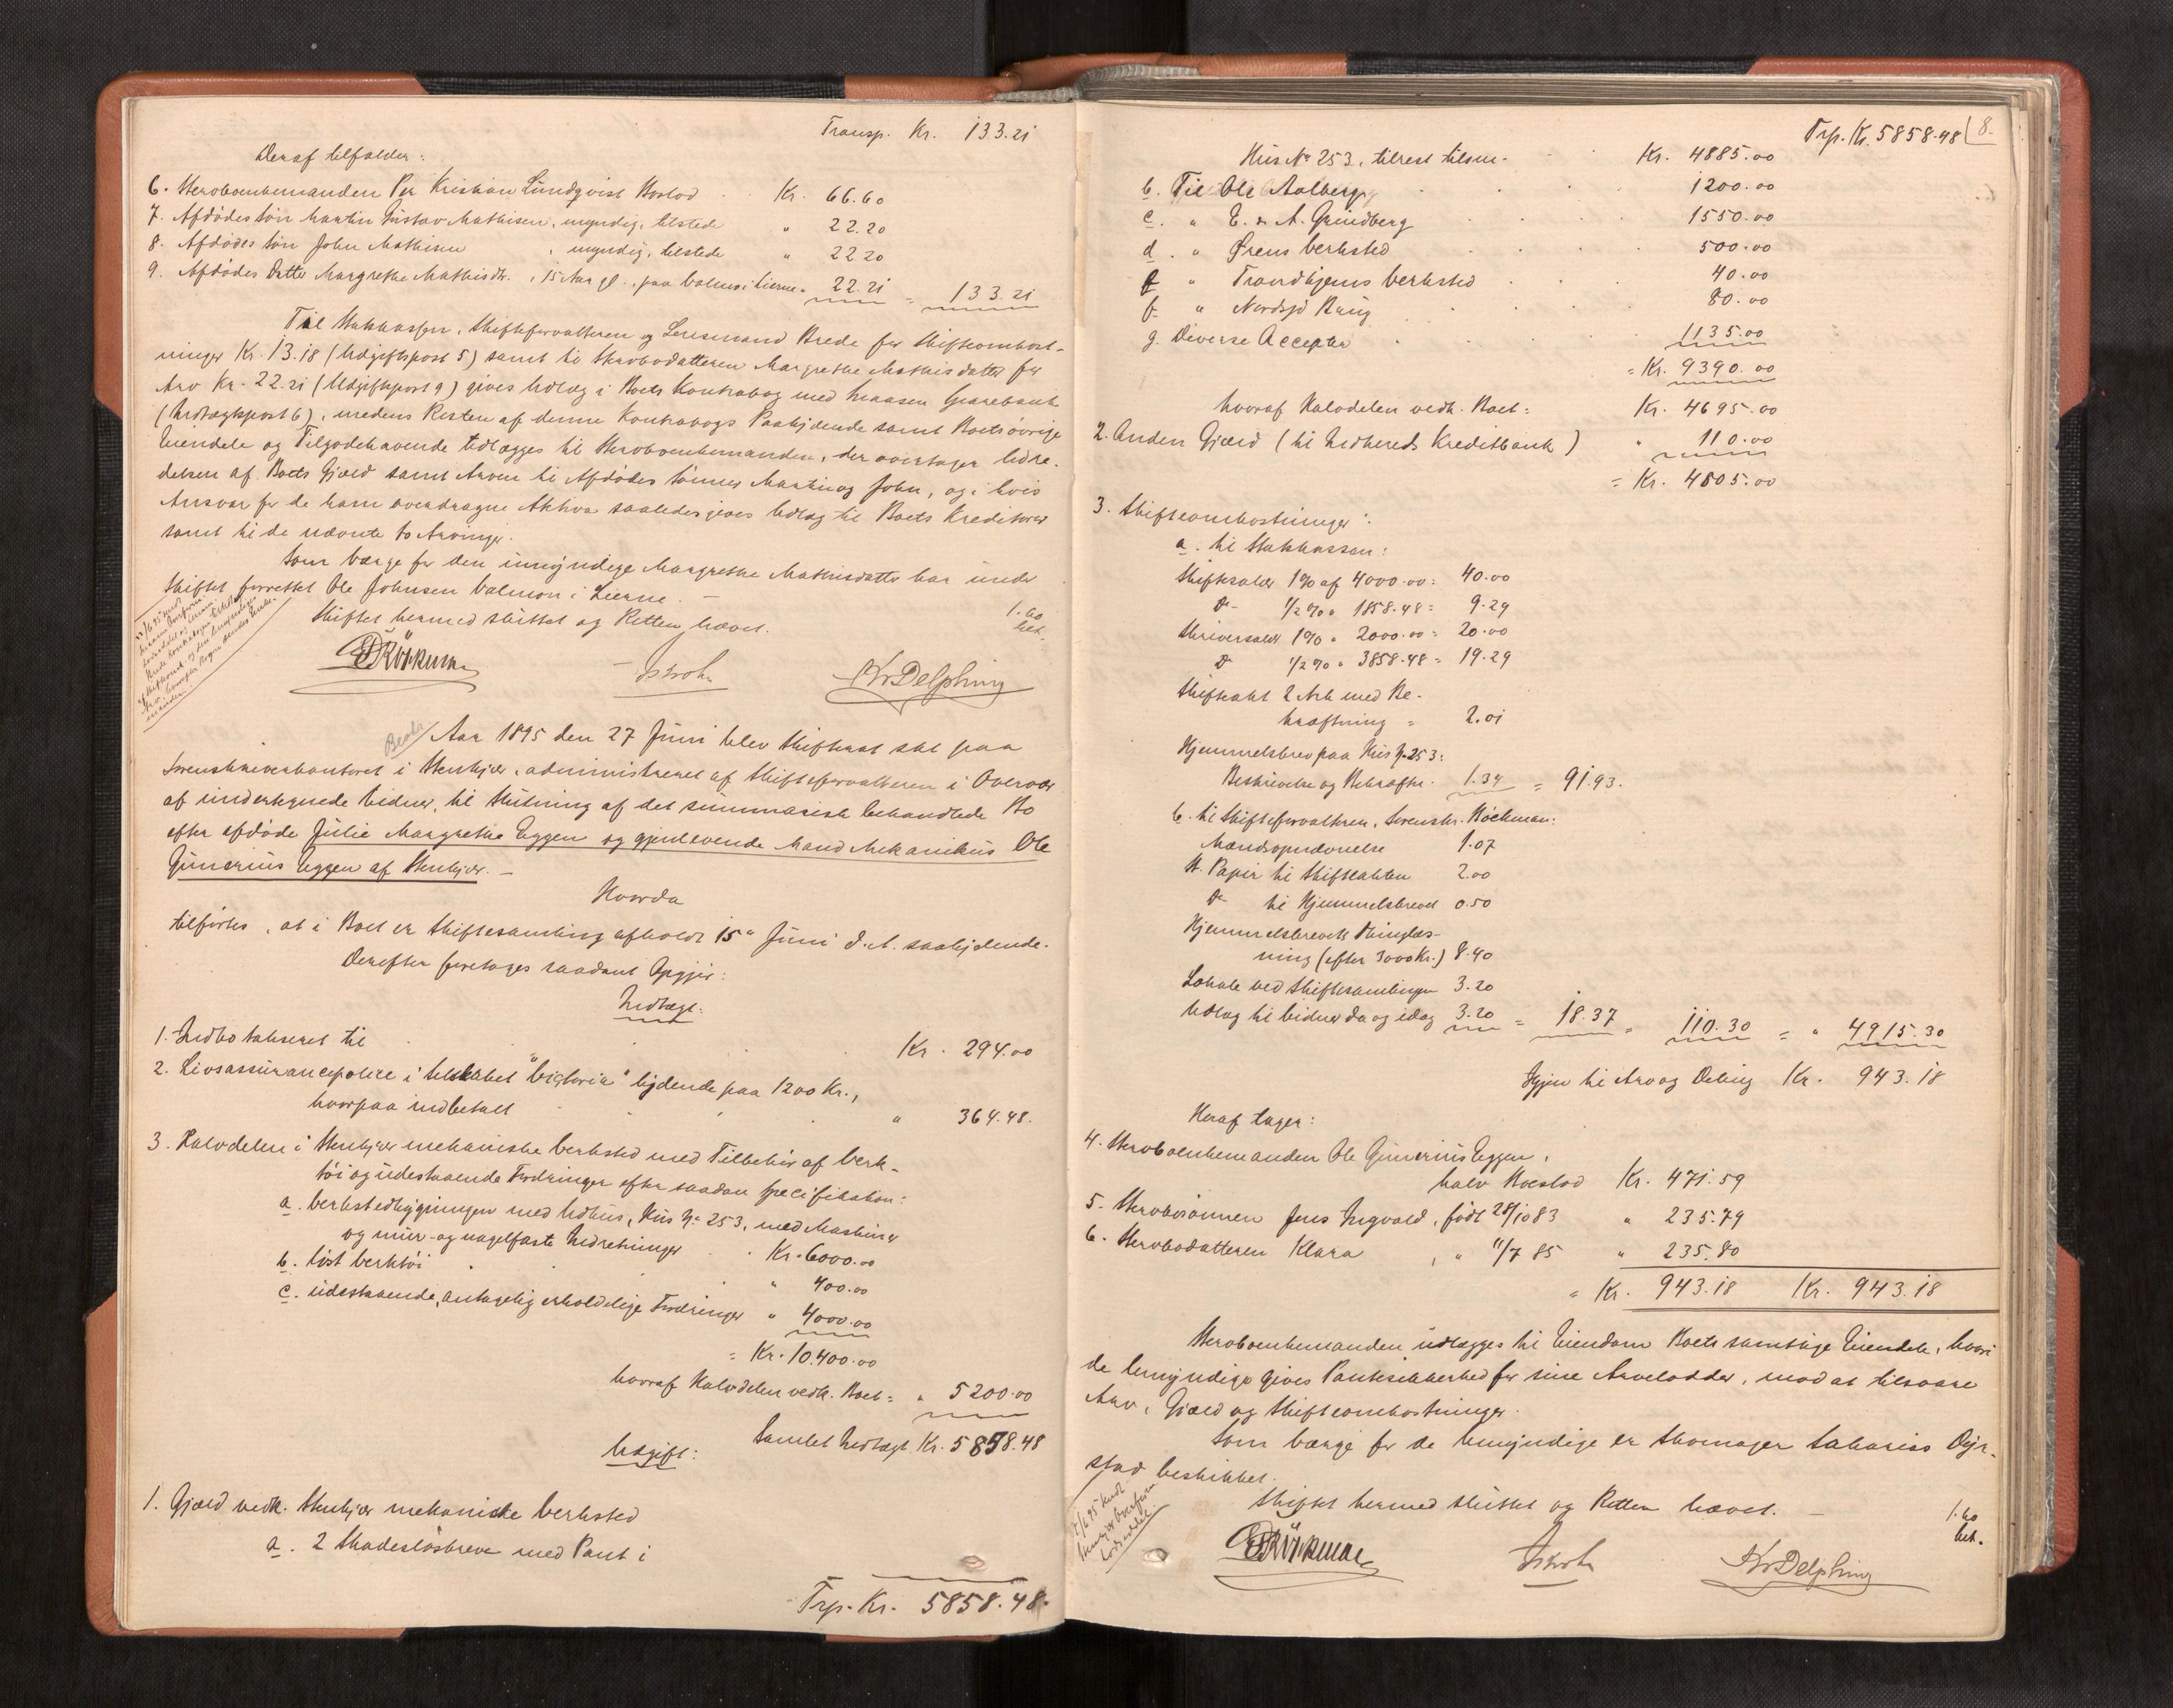 Transp. Kr. 133.21
Deraf tilfalder:
6. Sterboenkemanden Per Kristian Lundqvist Boslod Kr. 66.60
7. Afdødes søn Martin Gustav Mathisen, myndig, tilstede " 22.20
8. Afdødes søn John Mathisen, myndig, tilstede " 22.20
9. Afdødes Datter Margrethe Mathisdtr., 15 Aar gl., paa Valmo i Lierne " 22.21 = 133.21
Til Statskassen, Skifteforvalteren og Lensmand Brede for Skifteomkost-
ninger Kr. 13.18 (Udgiftspost 5) samt til Sterbodatteren Margrethe Mathisdatter for
Arv Kr. 22.21 (Udgiftspost 9) gives Udlæg i Boets Kontrabog med Snaasen Sparebank
(Indtægtspost 6), medens Resten af denne Kontrabogs Paalydende samt Boets øvrige
Eiendele og Tilgodehavende udlægges til Sterboenkemanden, der overtager Udre-
delsen af Boets Gjæld samt Arven til Afdødes Sønner Martin og John, og i hvis
Ansvar for de ham overdragne Aktiva saaledes gives Udlæg til Boets Kreditorer
samt til de nævnte to Arvinger.
Som Værge for den umyndige Margrethe Mathisdatter har under
Skiftet forrettet Ole Johnsen Valmoen i Lierne. —
Skiftet hermed sluttet og Retten hævet.
1.60
bet.
Kr Delphing
Aar 1895 den 27 Juni blev Skifteret sat paa
Sorenskriverkontoret i Stenkjær, administreret af Skifteforvalteren i Overvær
af undertegnede Vidner, til Slutning af det summarisk behandlede Bo
efter afdøde Julie Margrethe Eggen og gjenlevende Mand Mekanikus Ole
Gunerius Eggen af Stenkjær. —
Hvorda
tilførtes, at i Boet er Skiftesamling afholdt 15de Juni d. A. saalydende.
Derefter foretages saadant Opgjør:
Indtægt:
1. Indbo takseret til Kr. 294.00
2. Livsassurancepolice i Selskabet "Victoria" lydende paa 1200 Kr.,
hvorpaa indbetalt " 364.48.
3. Halvdelen i Stenkjær mekaniske Verksted med Tilbehør af Verk-
tøi og udestaaende Fordringer efter saadan Specifikation:
a. Verkstedbygningen med Udhus, Hus No 253, med Maskiner
og mur- og nagelfaste Indretninger Kr. 6000.00
b. løst Verktøi " 400.00
c. udestaaende, antagelig erholdelige Fordringer " 4000.00
= Kr. 10.400.00
hvoraf Halvdelen vedk. Boet = " 5200.00
Samlet Indtægt Kr. 5858.48
Udgift:
1. Gjæld vedk. Stenkjær mekaniske Verksted
a. 2 Skadesløsbreve med Pant i
Trp. Kr. 5858.48.
Trp. Kr. 5858.48
8.
Hus No 253, tilrest tilsm. Kr. 4885.00
b. Til Ole Aalberg 1200.00
c. " E. & A. Grundberg 1550.00
d. " Ørens Verksted 500.00
" Trondhjems Verksted 40.00
f. " Nordsjø Brug 80.00
g. Diverse Accepter 1135.00
= Kr. 9390.00
hvoraf Halvdelen vedk. Boet: Kr. 4695.00
2. Anden Gjæld (til Indhereds Kreditbank) " 110.00
= Kr. 4805.00
3. Skifteomkostninger:
a. til Statskassen:
Skiftesalær 1% af 4000.00 = 40.00
Do 1/2% " 1858.48 = 9.29
Skriversalær 1% " 2000.00 = 20.00
Do 1/2% " 3858.48 = 19.29
Skifteakt 2 Ark med Be-
kræftning = 2.01
Hjemmelsbrev paa Hus No 253:
Beskrivelse og Bekræftn. 1.34 = 91.93.
b. til Skifteforvalteren, Sorenskr. Böckman:
Mændsopnævnelse 1.07
St. Papir til Skifteakten 2.00
Do til Hjemmelsbrevet 0.50
Hjemmelsbrevets Thinglæs-
ning (efter 3000 Kr.) 8.40
Lokale ved Skiftesamlingen 3.20
Udlæg til Vidner da og idag 3.20 = 18.37 = 110.30 = " 4915.30
Igjen til Arv og Deling Kr. 943.18
Heraf tager:
4. Sterboenkemanden Ole Gunerius Eggen,
halv Boeslod Kr. 471.59
5. Sterbosønnen Jens Ingvald, født 28/10 83 " 235.79
6. Sterbodatteren Klara, " 11/7 85 " 235.80
= Kr. 943.18 Kr. 943.18
Sterboenkemanden udlægges til Eiendom Boets samtlige Eiendele, hvori
de Umyndige gives Pantesikkerhed for sine Arvelodder, mod at tilsvare
Arv, Gjæld og Skifteomkostninger.
Som Værge for de Umyndige er Skomager Sakarias Dyr-
stad beskikket.
Skiftet hermed sluttet og Retten hævet. —
1.60
bet.
Kr Delphing